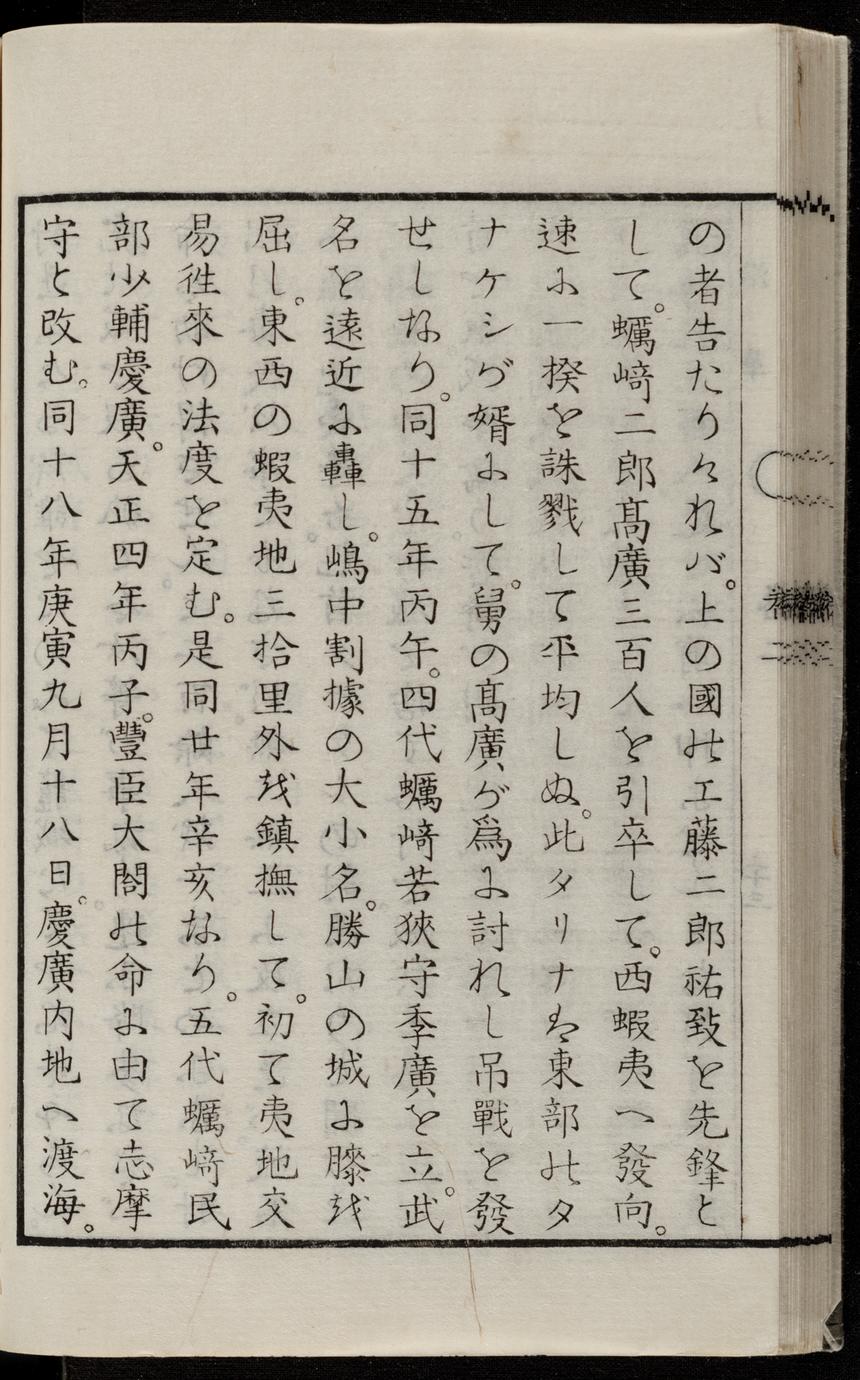 の者告たりけれバ。上の國の工藤二郎祐致を先鋒と
して。蠣﨑二郎髙廣三百人を引卒して。西蝦夷へ發向。
速に一揆を誅戮して平均しぬ。此タリナは東部のタ
ナケシが婿にして。舅の髙廣が爲に討れし吊戰を發
せしなり。同十五年丙午。四代蠣﨑若狹守季廣を立。武
名を遠近に轟し。嶋中割據の大小名。勝山の城に膝を
屈し。東西の蝦夷地三拾里外を鎮撫して。初て夷地交
易徃來の法度を定む。是同廿年辛亥なり。五代蠣﨑民
部少輔慶廣。天正四年丙子。豐臣大閤の命に由て志摩
守と改む。同十八年庚寅九月十八日。慶廣内地へ渡海。